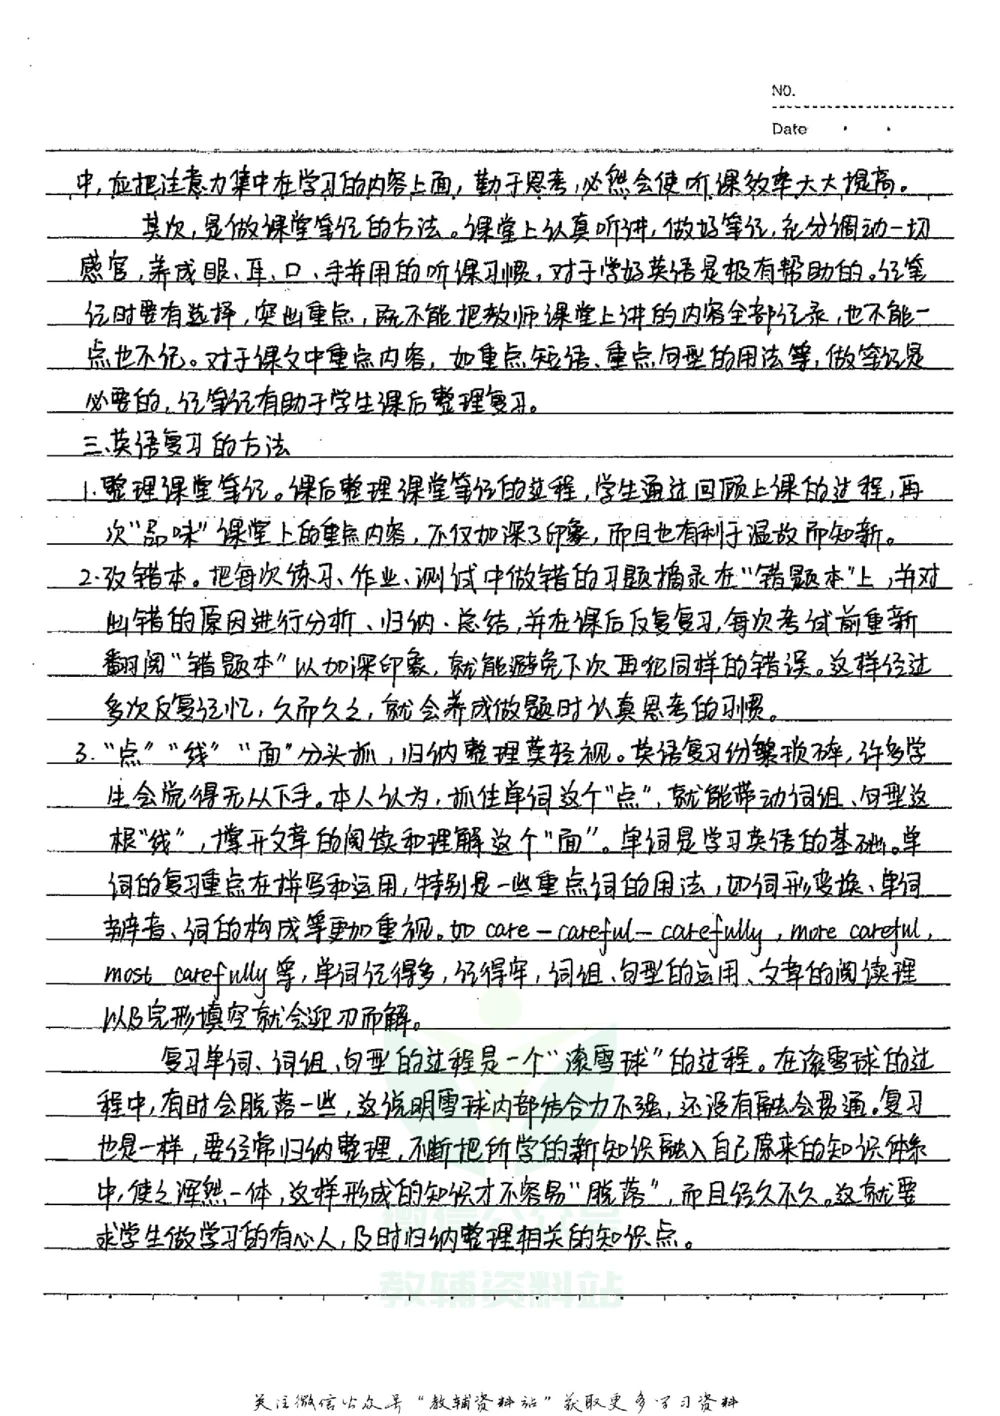 NO.
Date
中,应把注意力集中在学习的内容上面,勤于思考,必然会使听课效率大大提高。
其次,是做课堂笔记的方法。课堂上认真听讲,做好笔记,充分调动一切
感官,养成眼、耳、口、手并用的听课习惯,对于学好英语是极有帮助的。记笔
记时要有选择,突出重点,既不能把教师课堂上讲的内容全部记录,也不能一
点也不记。对于课文中重点内容,如重点短语、重点句型的用法等,做笔记是
必要的,记笔记有助于学生课后整理复习。
三、英语复习的方法
1.整理课堂笔记。课后整理课堂笔记的过程,学生通过回顾上课的过程,再
次"品味"课堂上的重点内容,不仅加深了印象,而且也有利于温故而知新。
2.改错本。把每次练习、作业、测试中做错的习题摘录在"错题本"上,并对
出错的原因进行分析、归纳、总结,并在课后反复复习,每次考试前重新
翻阅"错题本"以加深印象,就能避免下次再犯同样的错误。这样经过
多次反复记忆,久而久之,就会养成做题时认真思考的习惯。
3."点""线""面"分头抓,归纳整理莫轻视。英语复习纷繁琐碎,许多学
生会觉得无从下手。本人认为,抓住单词这个"点",就能带动词组、句型这
根"线",撑开文章的阅读和理解这个"面"。单词是学习英语的基础。单
词的复习重点在拼写和运用,特别是一些重点词的用法,如词形变换、单词
辨音、词的构成等更加重视。如care-careful-carefully,more careful,
most carefully等,单词记得多,记得牢,词组、句型的运用、文章的阅读理
以及完形填空就会迎刃而解。
复习单词、词组、句型的过程是一个"滚雪球"的过程。在滚雪球的过
程中,有时会脱落一些,这说明雪球内部结合力不强,还没有融会贯通。复习
也是一样,要经常归纳整理,不断把所学的新知识融入自己原来的知识体系
中,使之浑然一体,这样形成的知识才不容易"脱落",而且经久不久。这就要
求学生做学习的有心人,及时归纳整理相关的知识点。
微信公众号
教辅资料站
关注微信公众号"教辅资料站"获取更多学习资料